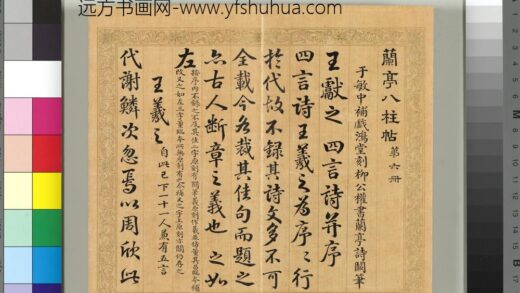 远方书画网-www.yfshuhua.com
蘭亭八柱帖 第六冊
于敏中補戲鴻堂刻柳公權書蘭亭詩闕筆
王獻之 四言詩并序
四言詩王羲之為序序行
於代故不錄其詩文多不可
全載今各裁其佳句而題之
亦古人斷章之義也 之如
左
王羲之 自此已下一十一人兼有五言
代謝鱗次忽焉以周欣此